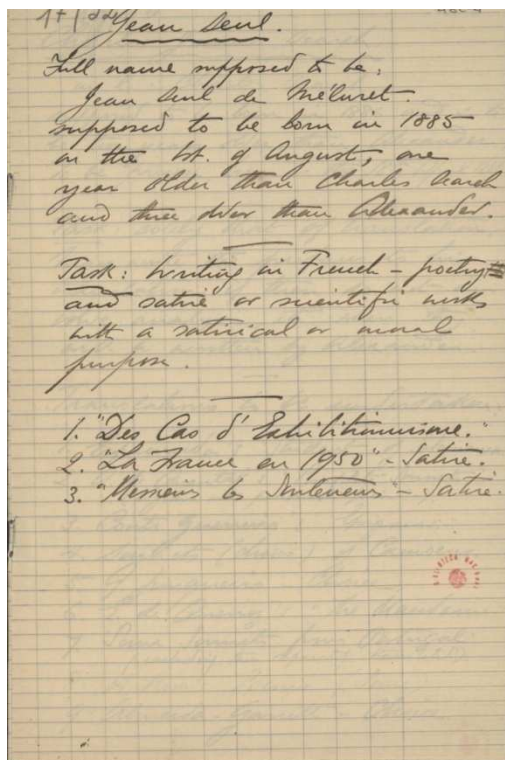 Jean Seul.
Full name supposed to be,
Jean Seul de Méluret.
supposed to be born in 1885
on the 1st. of August, one
year older than Charles Search
and three older than Alexander.
Task: Writing in French – poetry
and satire or scientific works
with a satirical or moral
purpose.
1. "Des Cas d'Exhibitionnisme."
2. "La France en 1950" – Satire.
3. "Messieurs les Souteneurs" – Satire.